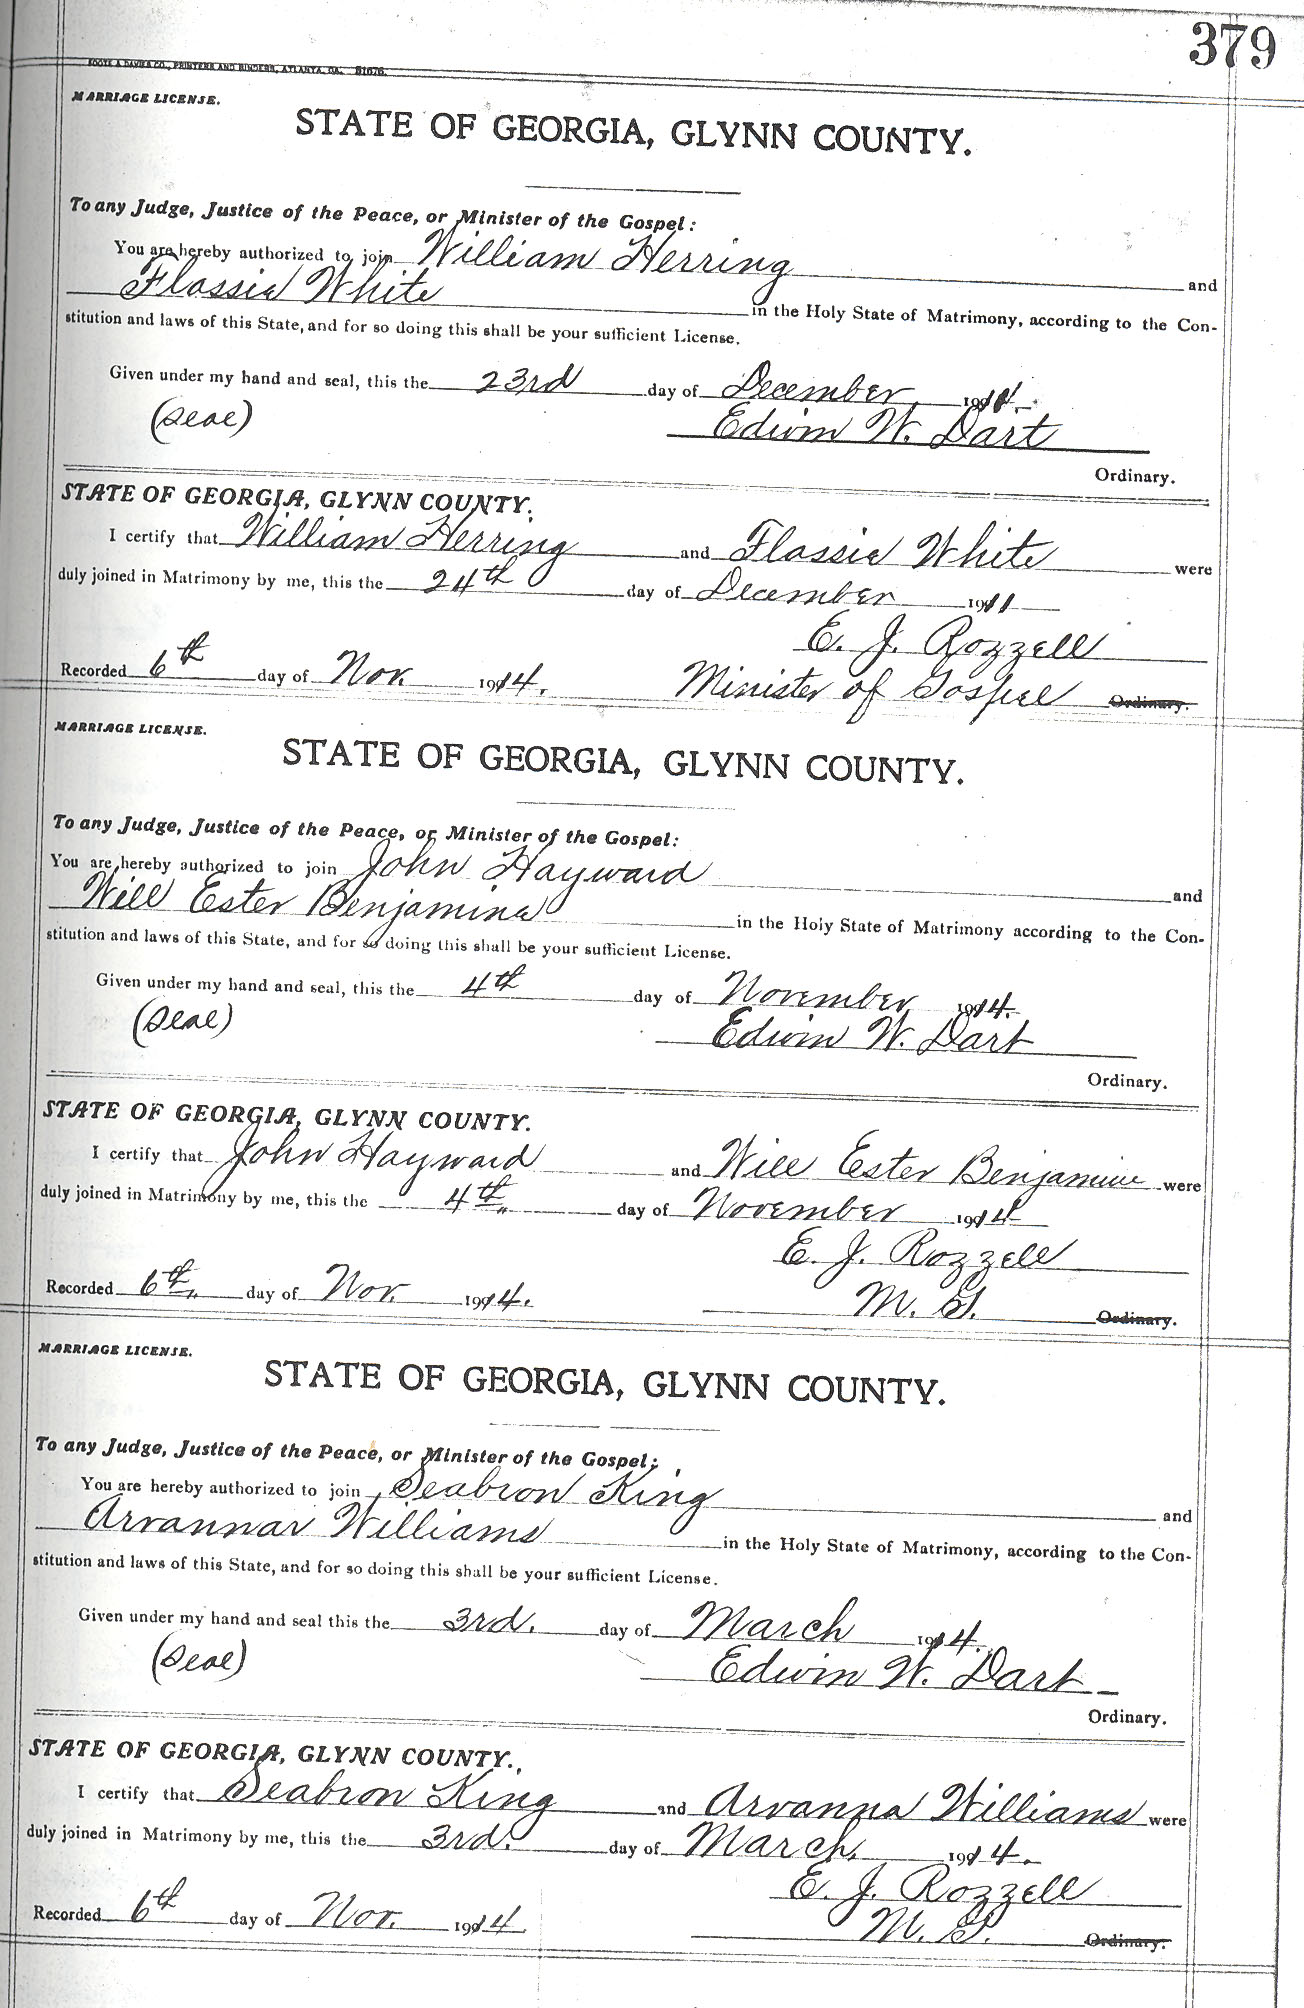 379
FOOTE & DAVIES CO., PRINTERS AND BINDERS, ATLANTA, GA. 51676.
MARRIAGE LICENSE.
STATE OF GEORGIA, GLYNN COUNTY.
To any Judge, Justice of the Peace, or Minister of the Gospel:
You are hereby authorized to join William Herring and
Flossie White in the Holy State of Matrimony, according to the Con-
stitution and laws of this State, and for so doing this shall be your sufficient License.
Given under my hand and seal, this the 23rd day of December
(Seal) Edwin W. Dart
Ordinary.
STATE OF GEORGIA, GLYNN COUNTY.
I certify that William Herring and Flossie White were
duly joined in Matrimony by me, this the 24th day of December 1911
E. J. Rozzell
Recorded 6th day of Nov. 1914. Minister of Gospel Ordinary.
MARRIAGE LICENSE.
STATE OF GEORGIA, GLYNN COUNTY.
To any Judge, Justice of the Peace, or Minister of the Gospel:
You are hereby authorized to join John Hayward and
Will Ester Benjamine in the Holy State of Matrimony according to the Con-
stitution and laws of this State, and for so doing this shall be your sufficient License.
Given under my hand and seal, this the 4th day of November 1914.
(Seal) Edwin W. Dart
Ordinary.
STATE OF GEORGIA, GLYNN COUNTY.
I certify that John Hayward and Will Ester Benjamine were
duly joined in Matrimony by me, this the 4th. day of November 1914
E. J. Rozzell
Recorded 6th. day of Nov. 1914. M. G. Ordinary.
MARRIAGE LICENSE.
STATE OF GEORGIA, GLYNN COUNTY.
To any Judge, Justice of the Peace, or Minister of the Gospel:
You are hereby authorized to join Seabron King and
Arvannar Williams in the Holy State of Matrimony, according to the Con-
stitution and laws of this State, and for so doing this shall be your sufficient License.
Given under my hand and seal this the 3rd. day of March 1914.
(Seal) Edwin W. Dart
Ordinary.
STATE OF GEORGIA, GLYNN COUNTY.
I certify that Seabron King and Arvanna Williams were
duly joined in Matrimony by me, this the 3rd. day of March. 1914.
E. J. Rozzell
Recorded 6th day of Nov. 1914 M. G. Ordinary.